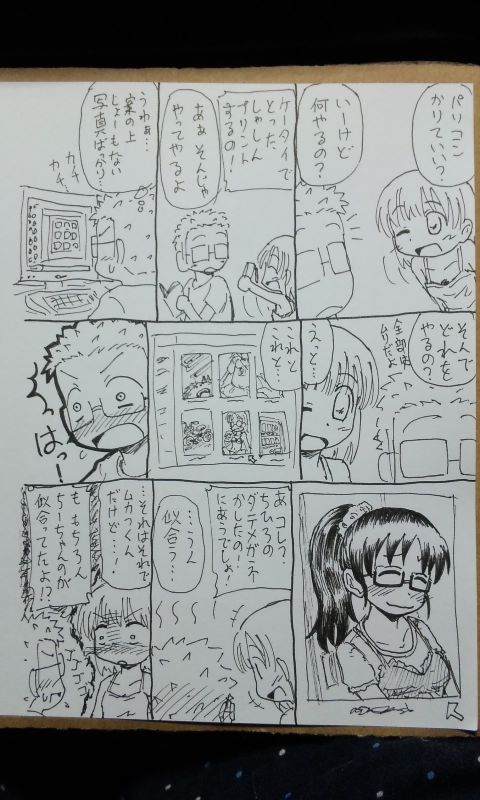 パソコン
かりていい？
いーけど
何やるの？
ケータイで
とった
しゃしん
プリント
するの！
あぁ そんじゃ
やってやるよ
うわぁ…
案の上
しょーもない
写真ばっかり…
カチ
カチ
そんで
どれを
やるの？
全部は
ムリだよ
えっと…
これと
これと…
はっ！
あ、コレ？
ちひろの
ダテメガネ
かしたの！
にあうでしょ！
…うん
似合う…
…それはそれで
ムカつくん
だけど…！
ももちろん
ちーちゃんのが
似合ってたよ！？